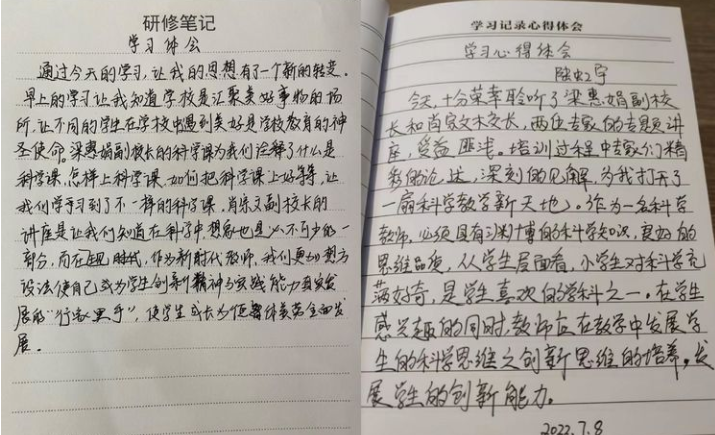 研修笔记
学习体会
通过今天的学习,让我的思想有了一个新的转变。
早上的学习让我知道学校是汇聚美好事物的场
所,让不同的学生在学校中遇到美好是学校教育的神
圣使命。梁惠娟副校长的科学课为我们诠释了什么是
科学课,怎样上科学课,如何把科学课上好等,让
我们学习到了不一样的科学课,肖宗文副校长的
讲座是让我们知道在科学中,想象也是必不可少的一
部分,而在 时代,作为新时代教师,我们更加想方
设法使自己成为学生创新精神与实践能力 发
展的“行家里手”,使学生成长为德智体美劳全面发
展。
学习记录心得体会
学习心得体会
陆虹宇
今天,十分荣幸聆听了梁惠娟副校
长和肖家文校长,两位专家的专题讲
座,受益匪浅。培训过程中专家们精
彩的论述,深刻的见解,为我打开了
一扇科学教学新天地。作为一名科学
教师,必须具有 博的科学知识,良好的
思维品质,从学生层面看,小学生对科学充
满好奇,是学生喜欢的学科之一。在学生
感兴趣的同时,教师应在教学中发展学
生的科学思维之创新思维的培养,发
展学生的创新能力。
2022.7.8